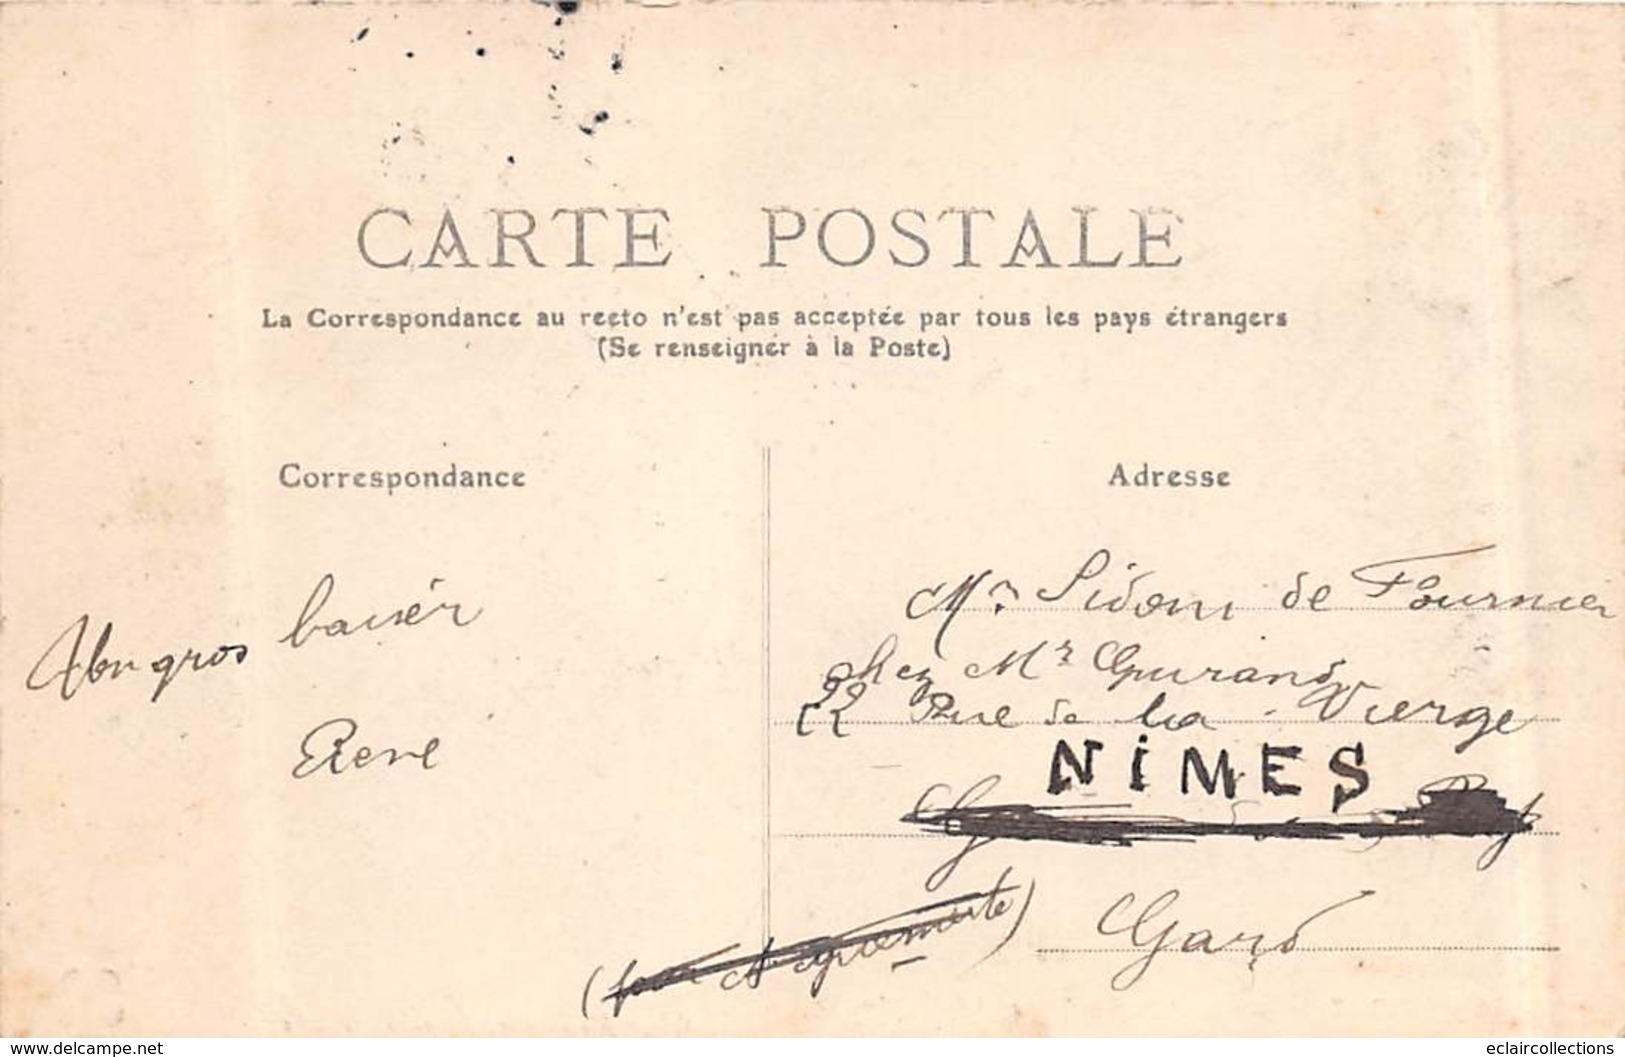 CARTE POSTALE
La Correspondance au recto n'est pas acceptée par tous les pays étrangers
(Se renseigner à la Poste)
Correspondance
Adresse
gros baisér
René
Sidoni de Fournier
chez Mr
22 Rue de la Vierge
NIMES
Gard
www.delcampe.net
eclaircollections